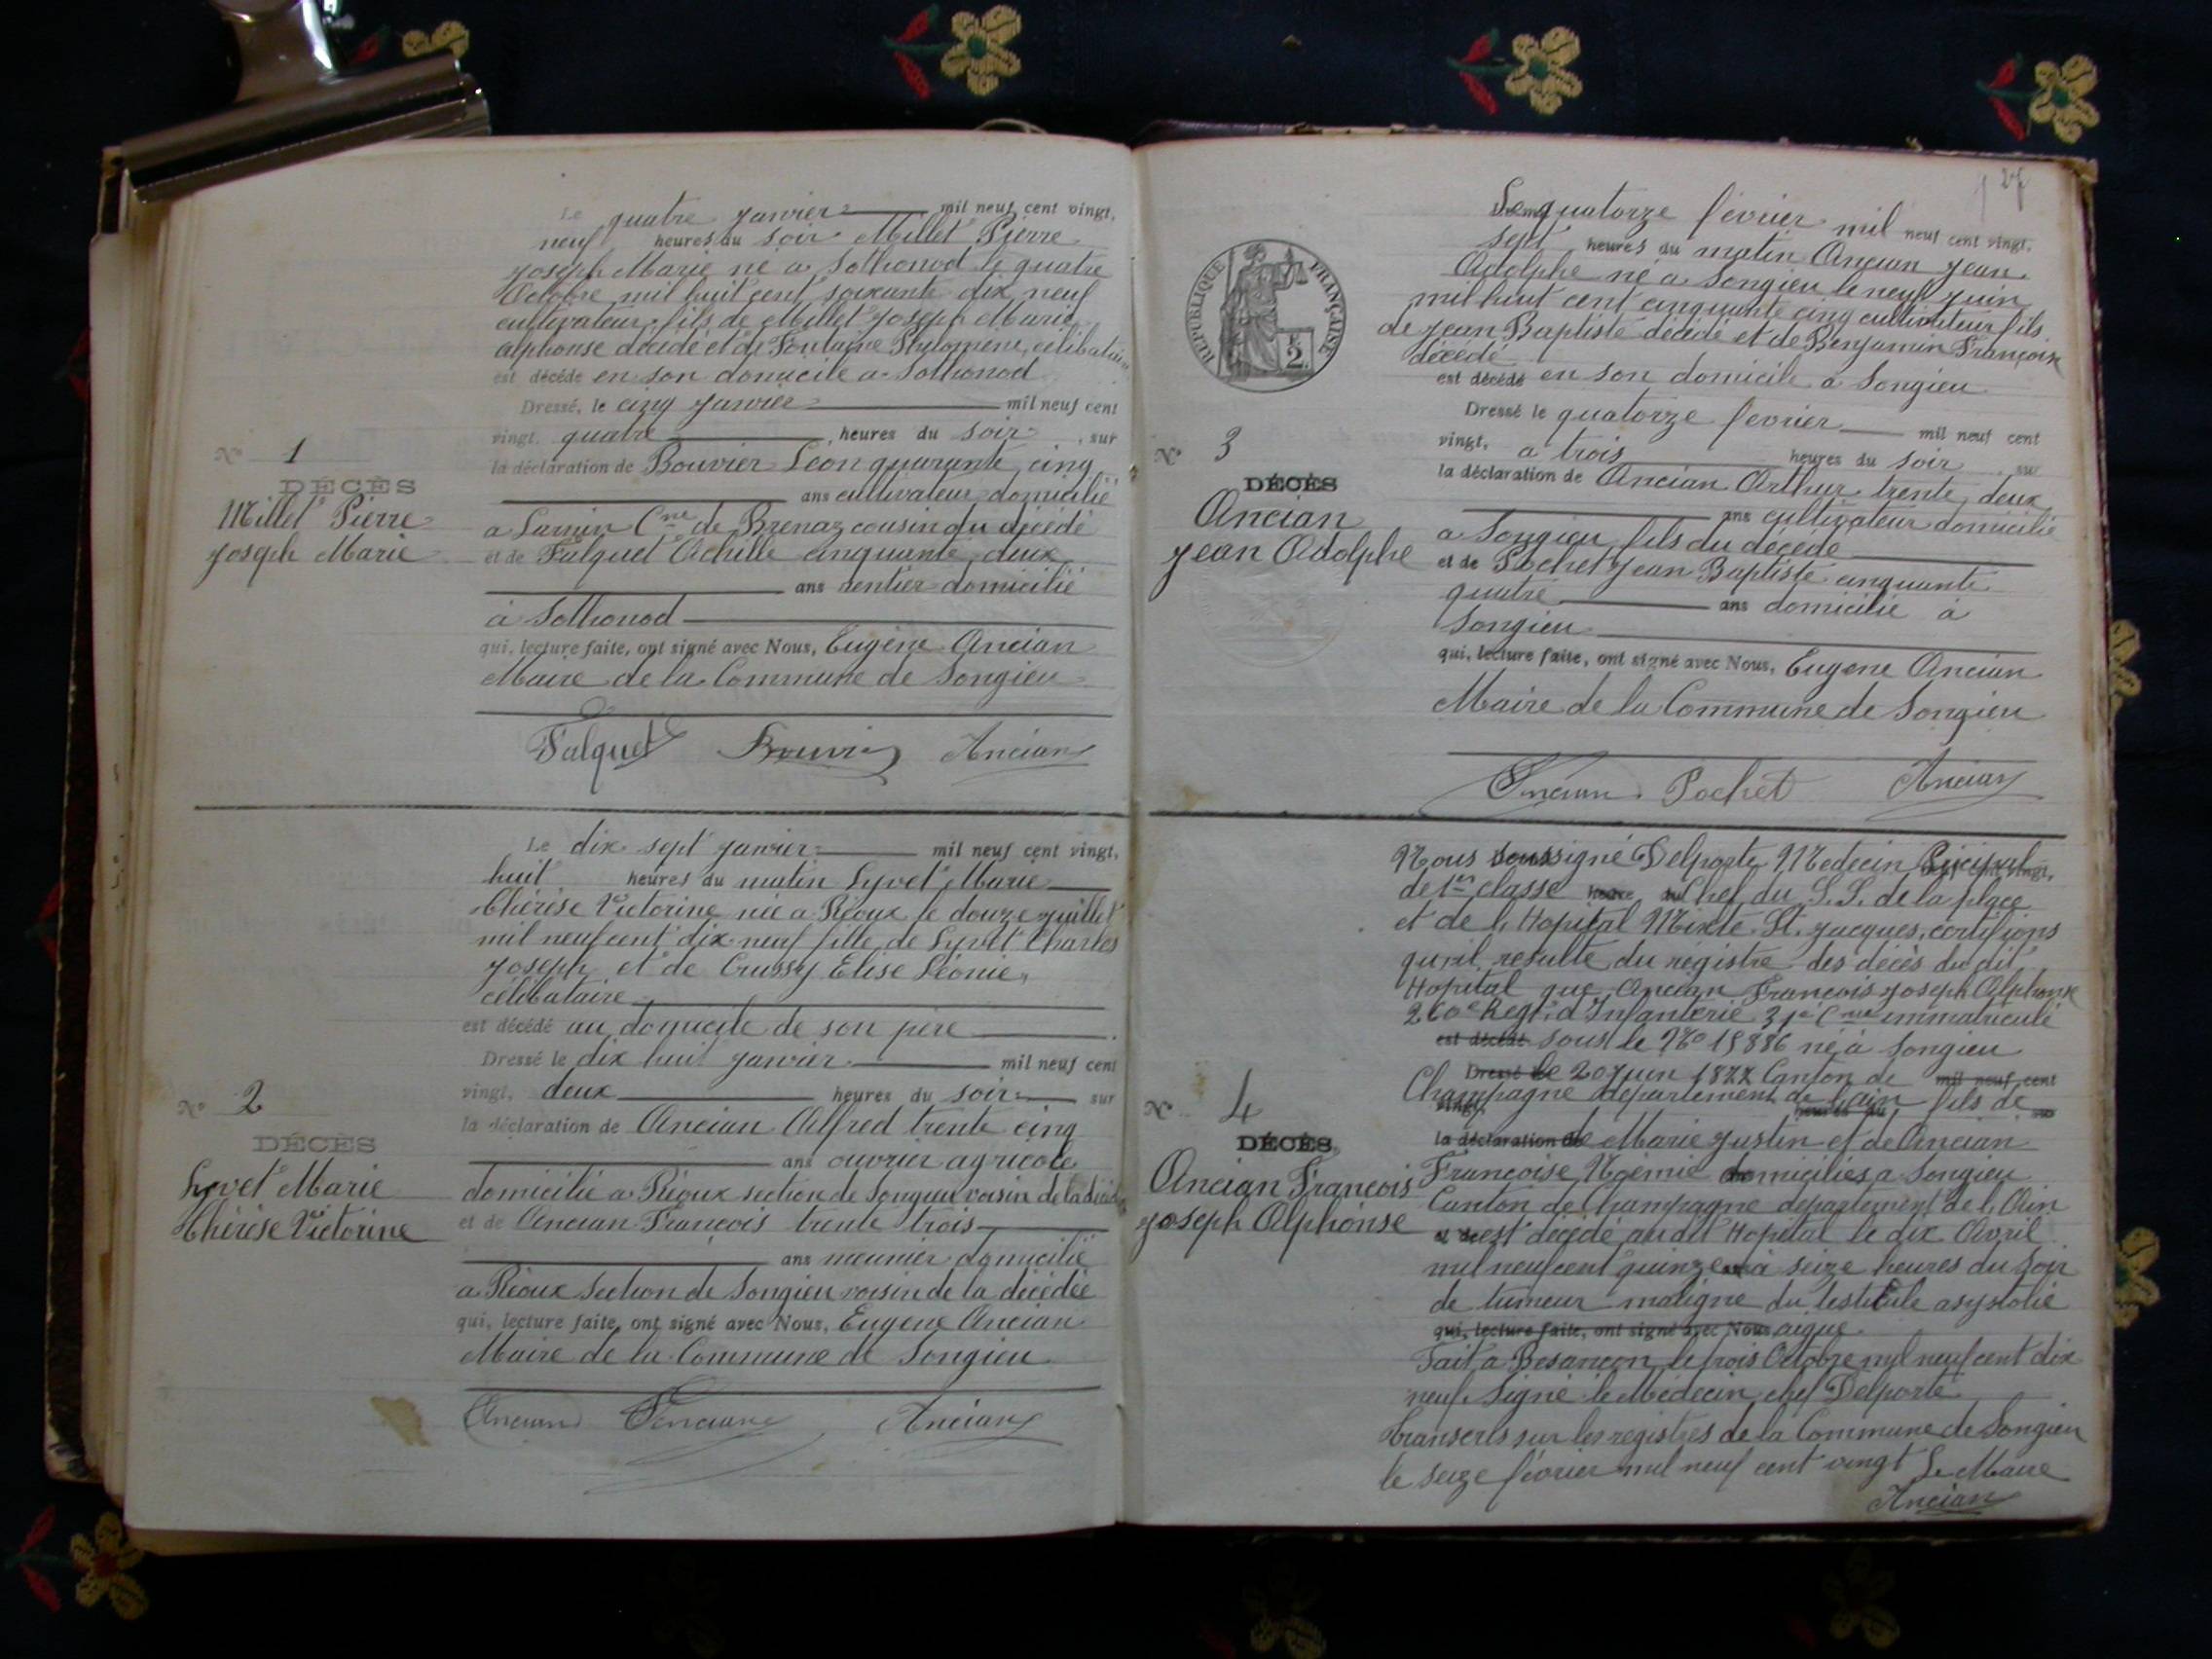 Le quatre janvier mil neuf cent vingt,
neuf heures du soir Millet Pierre
Joseph Marie né à Sothonod le quatre
Octobre mil huit cent soixante dix neuf
cultivateur fils de Millet Joseph Marie
Alphonse décédé et de Fontaine Philomène, célibataire
est décédé en son domicile a Sothonod
Dressé, le cinq janvier mil neuf cent
vingt, quatre heures du soir, sur
la déclaration de Bouvier Léon quarante cinq
ans cultivateur domicilié
a Lamin Cne de Brenaz cousin du décédé
et de Falquet Achille cinquante deux
ans rentier domicilié
à Sothonod
qui, lecture faite, ont signé avec Nous, Eugène Ancian
Maire de la Commune de Songieu
Falquet Bouvier Ancian
No 1
DÉCÈS
Millet Pierre
Joseph Marie
Le dix sept janvier mil neuf cent vingt,
huit heures du matin Lyvet Marie
Thérèse Victorine née a Rioux le douze juillet
mil neuf cent dix neuf fille de Lyvet Charles
Joseph et de Crussy Elise Léonie,
célibataire
est décédé au domicile de son père
Dressé le dix huit janvier mil neuf cent
vingt, deux heures du soir sur
la déclaration de Ancian Alfred trente cinq
ans ouvrier agricole
domicilié a Rioux section de Songieu voisin de la décédée
et de Ancian François trente trois
ans meunier domicilié
a Rioux section de Songieu voisin de la décédée
qui, lecture faite, ont signé avec Nous, Eugène Ancian
Maire de la Commune de Songieu
Ancian Ancian Ancian
No 2
DÉCÈS
Lyvet Marie
Thérèse Victorine
27
Le quatorze février mil neuf cent vingt,
sept heures du matin Ancian Jean
Adolphe né a Songieu le neuf juin
mil huit cent cinquante cinq cultivateur fils
de Jean Baptiste décédé et de Benjamin Françoise
décédé
est décédé en son domicile a Songieu
Dressé le quatorze fevrier mil neuf cent
vingt, a trois heures du soir sur
la déclaration de Ancian Arthur trente deux
ans cultivateur domicilié
a Songieu fils du décédé
et de Pochet Jean Baptiste cinquante
quatre ans domicilié à
Songieu
qui, lecture faite, ont signé avec Nous, Eugene Ancian
Maire de la Commune de Songieu
Ancian Pochet Ancian
RÉPUBLIQUE FRANÇAISE
2
No 3
DÉCÈS
Ancian
Jean Adolphe
Nous soussigné Delporte Medecin Principal
de 1ere classe Chef du S.S. de la place
et de l'Hopital Mixte St. Jacques, certifions
qu'il resulte du régistre des décès du dit
Hopital que Ancian Francois Joseph Alphonse
260e Regt. d'Infanterie 31e Cnie immatriculé
est décédé sous le No 15886 né à Songieu
Dressé le 20 Juin 1877 Canton de mil neuf cent
Champagne département de l'ain fils de
la déclaration de Marie Justin et de Ancian
Francoise Noémie domiciliés a Songieu
Canton de Champagne département de l'Ain
est décédé audit Hopital le dix Avril
mil neuf cent quinze à seize heures du soir
de tumeur maligne du testicule asystolie
qui, lecture faite, ont signé avec Nous aigue
Fait a Besançon le trois Octobre mil neuf cent dix
neuf. Signé le Médecin chef Delporte
Transcris sur les registres de la Commune de Songieu
le seize février mil neuf cent vingt Le Maire
Ancian
No 4
DÉCÈS
Ancian François
Joseph Alphonse